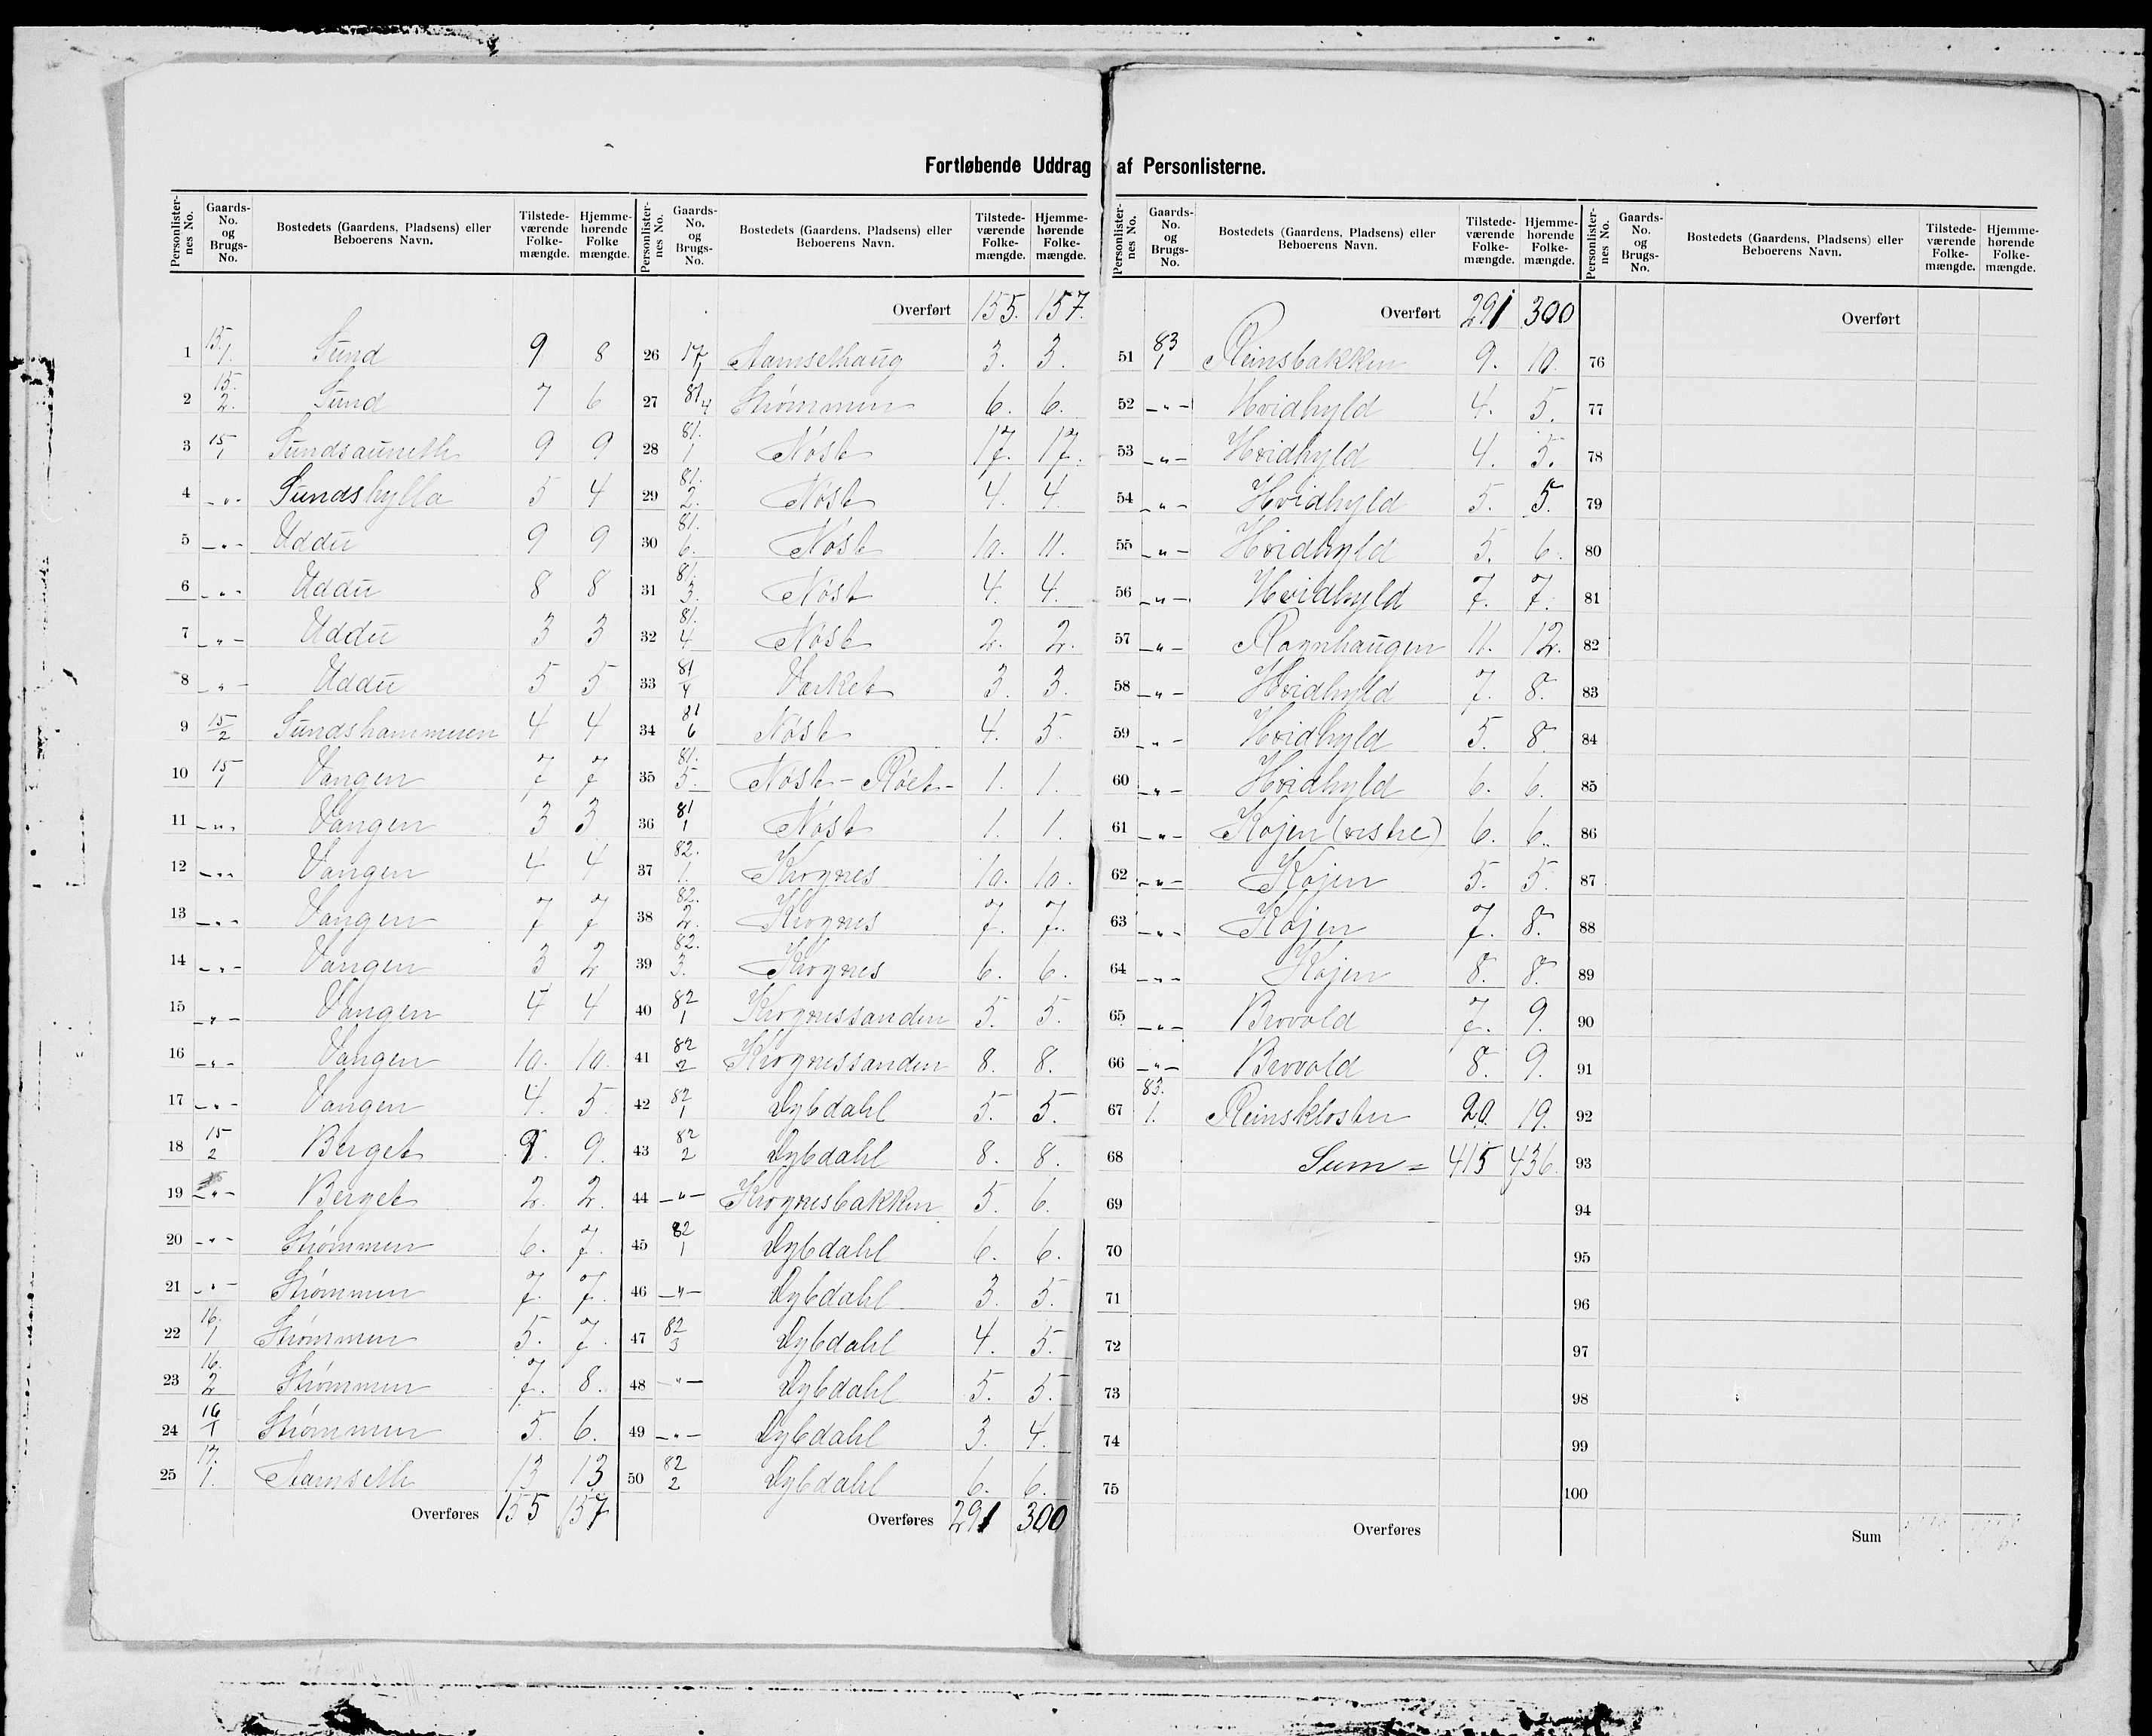 Fortløbende Uddrag af Personlisterne.
Personlisternes No. Gaards-No. og Brugs-No. Bostedets (Gaardens, Pladsens) eller Beboerens Navn. Tilstedeværende Folkemængde. Hjemmehørende Folkemængde.
1 15./1. Sund 9 8
2 15./2. Sund 7 6
3 15/1 Sundsauneth 9 9
4 -"- Sundshylla 5 4
5 -"- Uddu 9 9
6 -"- Uddu 8 8
7 -"- Uddu 3 3
8 -"- Uddu 5 5
9 15/2 Sundshammeren 4 4
10 15/1 Vangen 7 7
11 -"- Vangen 3 3
12 -"- Vangen 4 4
13 -"- Vangen 7 7
14 -"- Vangen 3 2
15 -"- Vangen 4 4
16 -"- Vangen 10. 10.
17 -"- Vangen 4. 5
18 15/2 Berget 9. 9.
19 -"- Berget 2. 2.
20 -"- Strømmen 6. 7.
21 -"- Strømmen 7. 7.
22 16./1 Strømmen 5. 7.
23 16./2 Strømmen 7. 8.
24 16/1 Strømmen 5. 6.
25 17./1. Aamseth 13 13
Overføres 155 157
Overført 155. 157.
26 17/1 Aamsethaug 3. 3.
27 81/4 Strømmen 6. 6.
28 81./1 Nøst 17. 17.
29 81./2. Nøst 4. 4.
30 81./6. Nøst 10. 11.
31 81./3. Nøst 4. 4.
32 81./4 Nøst 2. 2.
33 81/4 Vasket 3. 3.
34 81/6 Nøst 4. 5.
35 81./5. Nøst - Røet - 1. 1.
36 81/1 Nøst 1. 1.
37 82./1. Krognes 10. 10.
38 82./2. Krognes 7. 7.
39 82./3. Krognes 6. 6.
40 82/1 Krognessanden 5. 5.
41 82/2 Krognessanden 8. 8.
42 82/1 Dybdahl 5. 5.
43 82/2 Dybdahl 8. 8.
44 -"- Krognesbakken 5. 6.
45 82/1 Dybdahl 6. 6.
46 -"- Dybdahl 3. 5.
47 82/3 Dybdahl 4. 5.
48 -"- Dybdahl 5. 5.
49 -"- Dybdahl 3. 4.
50 82/2 Dybdahl 6. 6.
Overføres 291 300
Overført 291 300
51 83/1 Reinsbakken 9. 10.
52 -"- Hvidhyld 4. 5.
53 -"- Hvidhyld 4. 5.
54 -"- Hvidhyld 5. 5.
55 -"- Hvidhyld 5. 6.
56 -"- Hvidhyld 7. 7.
57 -"- Ravnhaugen 11. 12.
58 -"- Hvidhyld 7. 8.
59 -"- Hvidhyld 5. 8.
60 -"- Hvidhyld 6. 6.
61 -"- Køjen (østre) 6. 6.
62 -"- Køjen 5. 5.
63 -"- Køjen 7. 8.
64 -"- Køjen 8. 8.
65 -"- Brovold 7. 9.
66 -"- Brovold 8. 9.
67 83./1. Reinskloster 20. 19.
68 Sum = 415 436.
69
70
71
72
73
74
75
Overføres
Overført
76
77
78
79
80
81
82
83
84
85
86
87
88
89
90
91
92
93
94
95
96
97
98
99
100
Sum